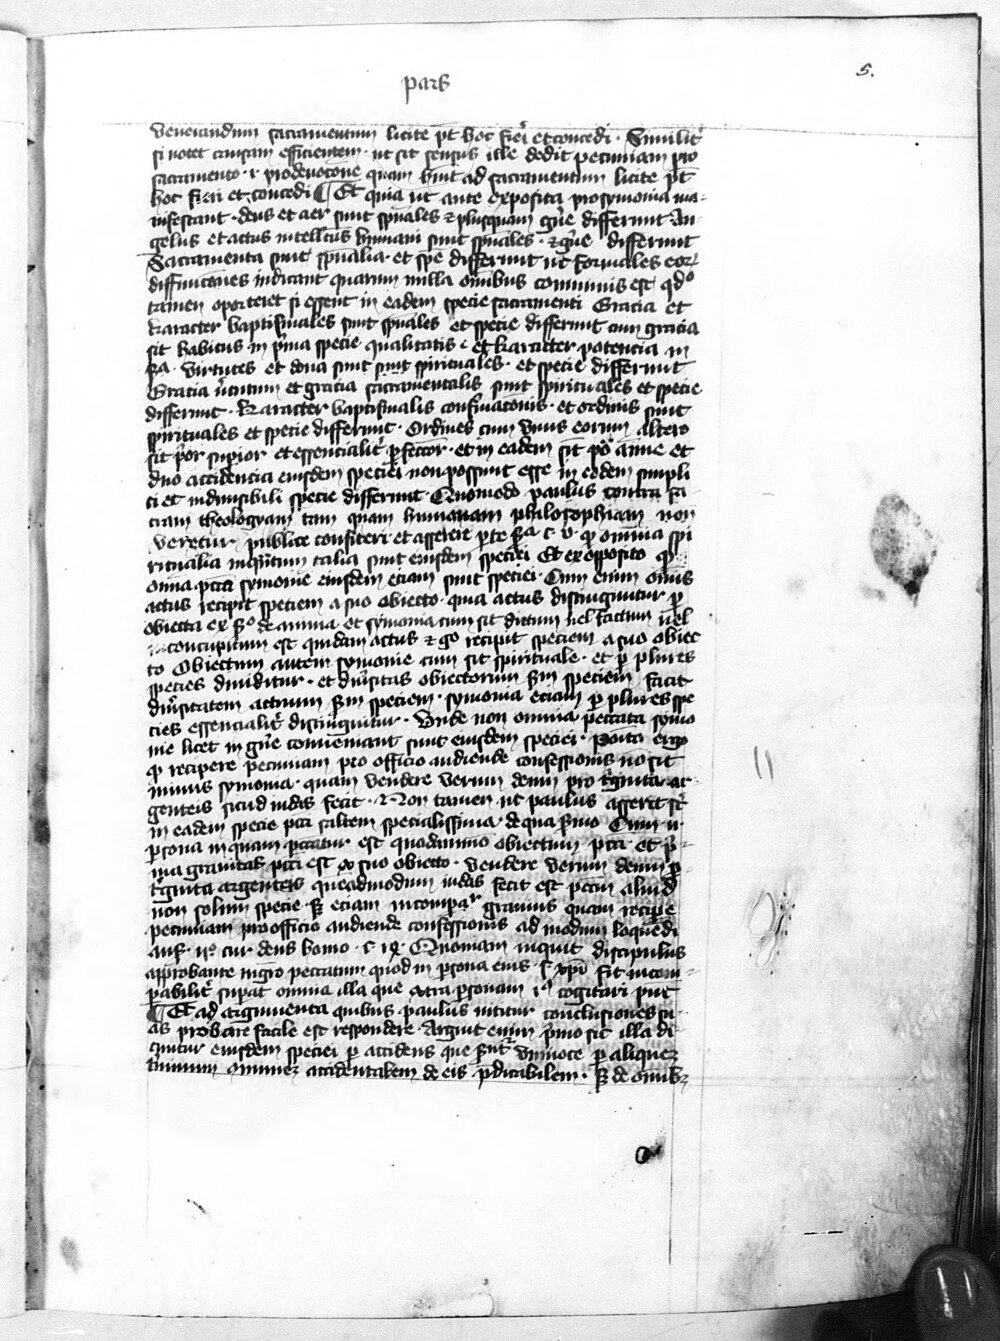 pars
5.
venerandum sacramentum licite pt hoc fieri et concedi . Similit
si notet causam efficientem . ut sit sensus ille dedit pecuniam pro
sacramento . quam hnt ad sacramentum licite pt
hoc fieri et concedi ¶ Et quia ut ante exposita prosymonia ma-
nifestant . deus et aer sunt spuales et plusquam gne differunt An-
gelus et actus intellectus humani sunt spuales . et gne differunt
Sacramenta sunt spualia . et spe differunt ut formales eor
diffinitiones indicant quarum nulla omibus communis est qd
tamen oporteret si essent in eadem specie sacramenti Gratia et
karacter baptismales sunt spuales et specie differunt cum gratia
sit habitus in pma specie qualitatis . et karacter potencia in
Virtutes et dona sunt spirituales . et specie differunt
Gratia virtutum et gratia sacramentalis sunt spirituales et specie
differunt . Karacter baptismalis confirmationis . et ordinis sunt
spirituales et specie differunt . Ordines cum unus eorum altero
sit pior supior et essencialit pfectior . et in eadem sit po anime et
duo accidencia eiusdem speciei non possunt esse in eodem simpli
ci et indivisibili specie differunt . Quomodo paulus contra sa
cram theologyam tam quam humanam philosophicam non
veretur publice confiteri et asserere qp omnia spi
ritualia inquantum talia sunt eiusdem speciei Et ex opposito qp
omnia pcta symonie eiusdem eciam sunt speciei . Cum enim omnis
actus recipit speciem a suo obiecto . quia actus distinguuntur p
obiecta ex de anima . et symonia cum sit dictum uel factum uel
concupitum est quidam actus et go recipit speciem a suo obiec
to Obiectum autem symonie cum sit spirituale . et p plures
species dividitur . et diversitas obiectorum sm speciem facit
diversitatem actuum sm speciem . symonia eciam p plures spe
cies essencialit distinguitur . Unde non omnia peccata symo
nie licet in gne conveniant sunt eiusdem speciei . Posito ergo
qp recipere pecuniam pro officio audiende confessionis no sit
minus symonia . quam vendere verum deum pro triginta ar
genteis sicud iudas fecit . Non tamen ut paulus asserit
in eadem specie pcti saltem specialissima . de qua primo Cum
psona in quam peccatur est quodammodo obiectum pcti . et
ma gravitas pcti est ex suo obiecto . vendere verum deum p
triginta argenteis quemadmodum iudas fecit est pctm aliud
non solum specie . sed eciam incompar gravius quam recipe
pecuniam pro officio audiende confessionis ad modum loquendi
cur deus homo . Quoniam inquit discipulus
approbante mgro peccatum quod in psona eius fit incom-
pabilit supat omnia illa que extra psonam cogitari pnt
¶ Et ad argumenta quibus paulus nititur conclusiones su-
as probare facile est respondere . Arguit enim pmo sic illa di-
cuntur eiusdem speciei p accidens que univoce p aliquem
terminum accidentalem de eis pdicabilem . sed de omnib